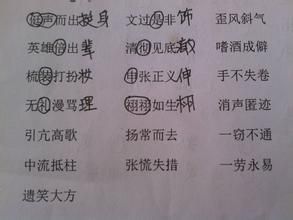 挺声而出 挺身 文过是非 饰 歪风斜气
英雄倍出 辈 清彻见底 澈 嗜酒成僻
梳装打扮 妆 申张正义 伸 手不失卷
无礼漫骂 理 栩栩如生 栩 消声匿迹
引亢高歌 扬常而去 一窃不通
中流抵柱 张慌失措 一劳永易
遗笑大方